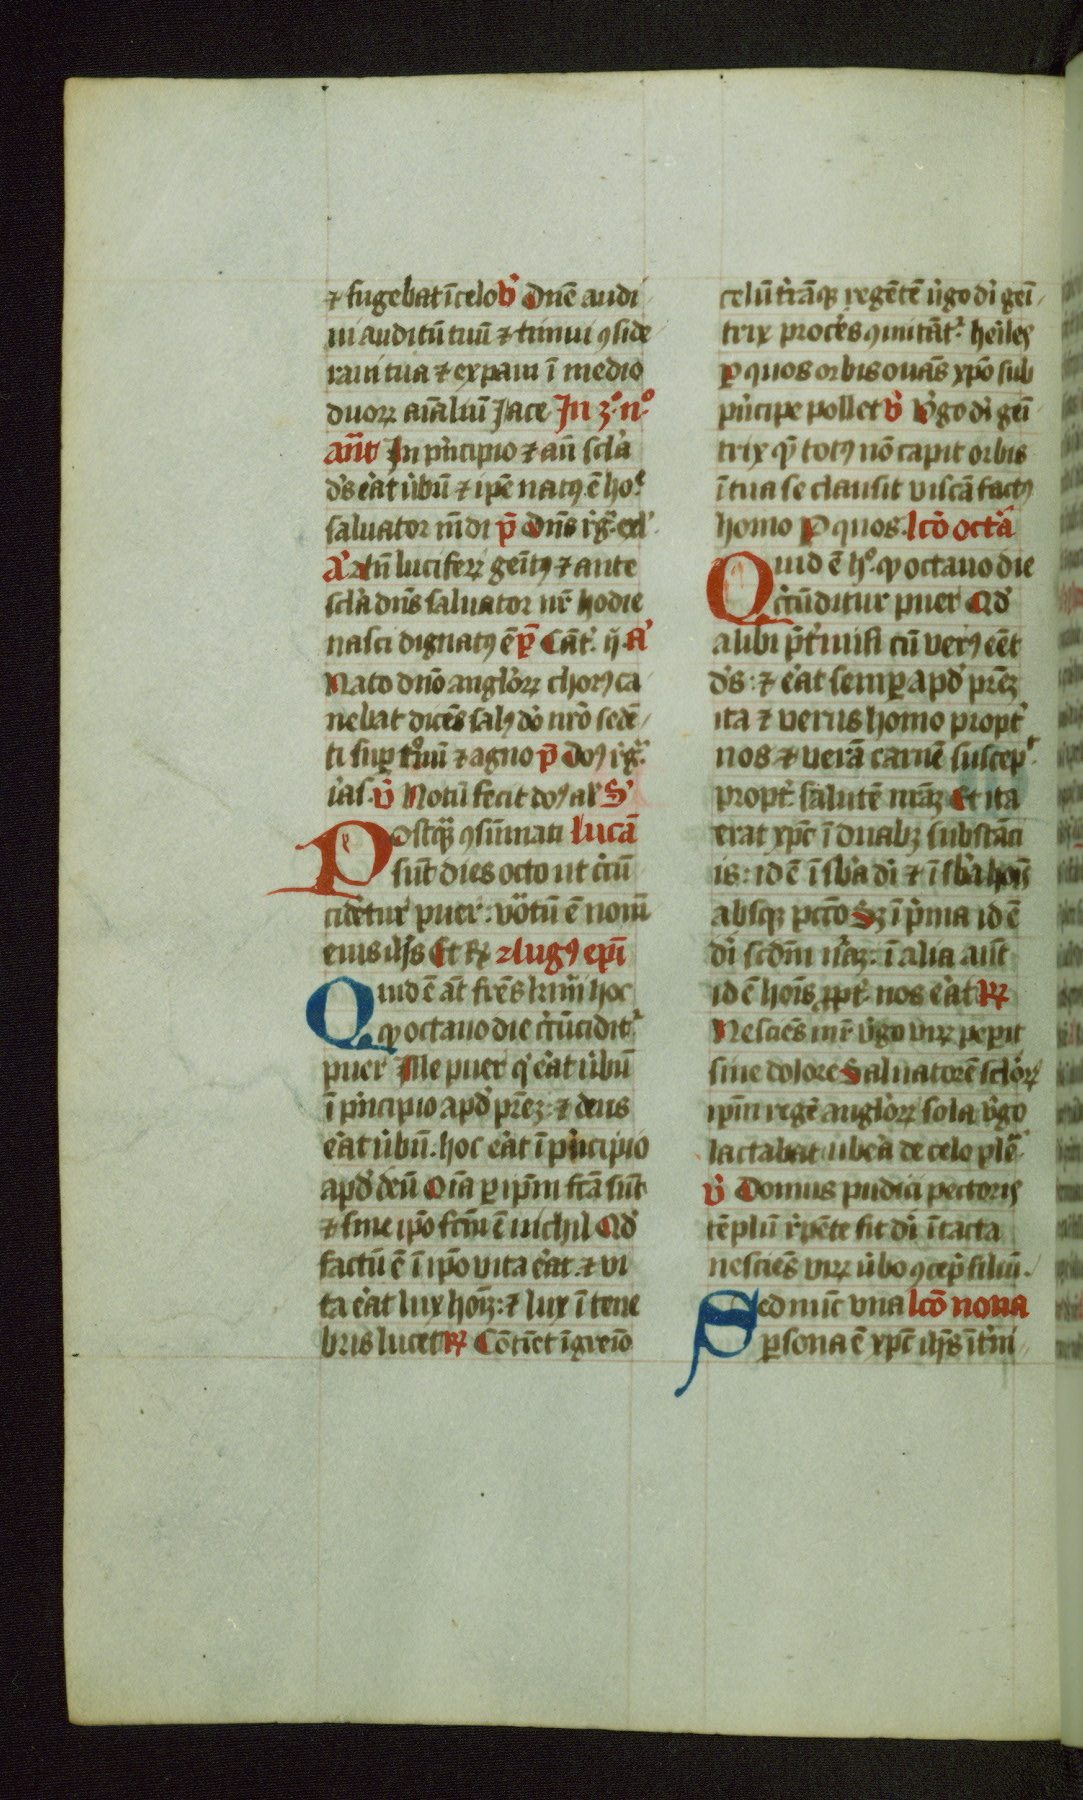 ⁊ fugebat ī celo v̓ Dn̄e audi
ui auditū tuū ⁊ timui ꝯside
raui tua ⁊ expaui ī medio
duoꝝ aīaliū Jace Jn 3º nº
an̄t Jn pͥncipio ⁊ an̄ scl̓a
dˢ er̓at v̓bū ⁊ ip̄e natꝰ ē ho.
saluator mūdi p̄ Dn̄s
Aͣ Añ luciferꝝ genitꝰ ⁊ ante
scl̓a dn̄s saluator nr̄ hodie
nasci dignatꝰ ē p̄ Cāt. ij Aͣ
Nato dn̄o angl̓oꝝ chorꝰ ca
nebat dicēs salꝰ dō nr̄o sedē
ti suꝑ tͦnū ⁊ agno p̄ Doꝰ
v̓ Notū fecit doꝰ al̓ Sͣ
Postqͣꝫ ꝯsūmati lucā
sūt dies octo ut cͥcū
cidētur puer: vōtū ē nom̄
eius ih̓s Et Rͤ Augꝰ epī
Quid ē at̄ fr̄es kmī hoc
qꝫ octauo die cͥcūcidit̉
puer Jlle puer qͥ er̓at v̓bū
ī pͥncipio apd̓ pr̄eꝫ: ⁊ deus
er̓at v̓bū. hoc er̓at ī pͥncipio
apd̓ deū Oīa ꝑ ip̄m fc̄a sūt
⁊ sine ip̄o fc̄m ē nichil Qd̓
factū ē ī ip̄o vita er̓at. ⁊ vi
ta er̓at lux hoīꝫ: ⁊ lux ī tene
bris lucet Rꝝ Cōtīet ī gͤmio
celū tr̓āqꝫ regētē v̓go dī geī
trix proc̓es ꝯmitāt̉ her̓iles
ꝑ quos orbis ouās xp̄o sub
pͥncipe pollet v̓ V̓go dī geī
trix qͣ totꝰ nō capit orbis
ī tua se clausit viscͣa factꝰ
homo P quos. lcō octā
Quid ē hͦ. qꝫ octauo die
cͥcūditur puer Qd̓
alibi pͥt̄ nisi cū verꝰ eēt
dˢ: ⁊ er̓at semꝑ apd̓ pr̄eꝫ
ita ⁊ verus homo propt̓
nos ⁊ verā carnē suscep̉
propt̓ salutē nr̄āꝫ Et ita
erat xp̄c ī duabꝫ substāci
is: id ē ī sb̓a dī ⁊ ī sb̓a hoīs
absqꝫ pcc̄o Sꝫ ī pͥma id ē
dī scd̄m nr̄aꝫ: ī alia aūt
id ē hoīs ꝓpt̓ nos er̓at Rꝝ
Nesciēs mr̄ v̓go viꝝ peꝑit
sine dolore Saluatorē scl̓oꝝ
ip̄m regē angl̓oꝝ sola v̓go
lactabat ubera de celo plē
v̓ Domus pudici pectoris
tēplū rͤpēte fit dī ītacta
nesciēs viꝝ v̓bo ꝯcep̓ filiū.
Sed nūc vna lcō nona
ꝑsona ē xp̄c ih̄s īt̄im